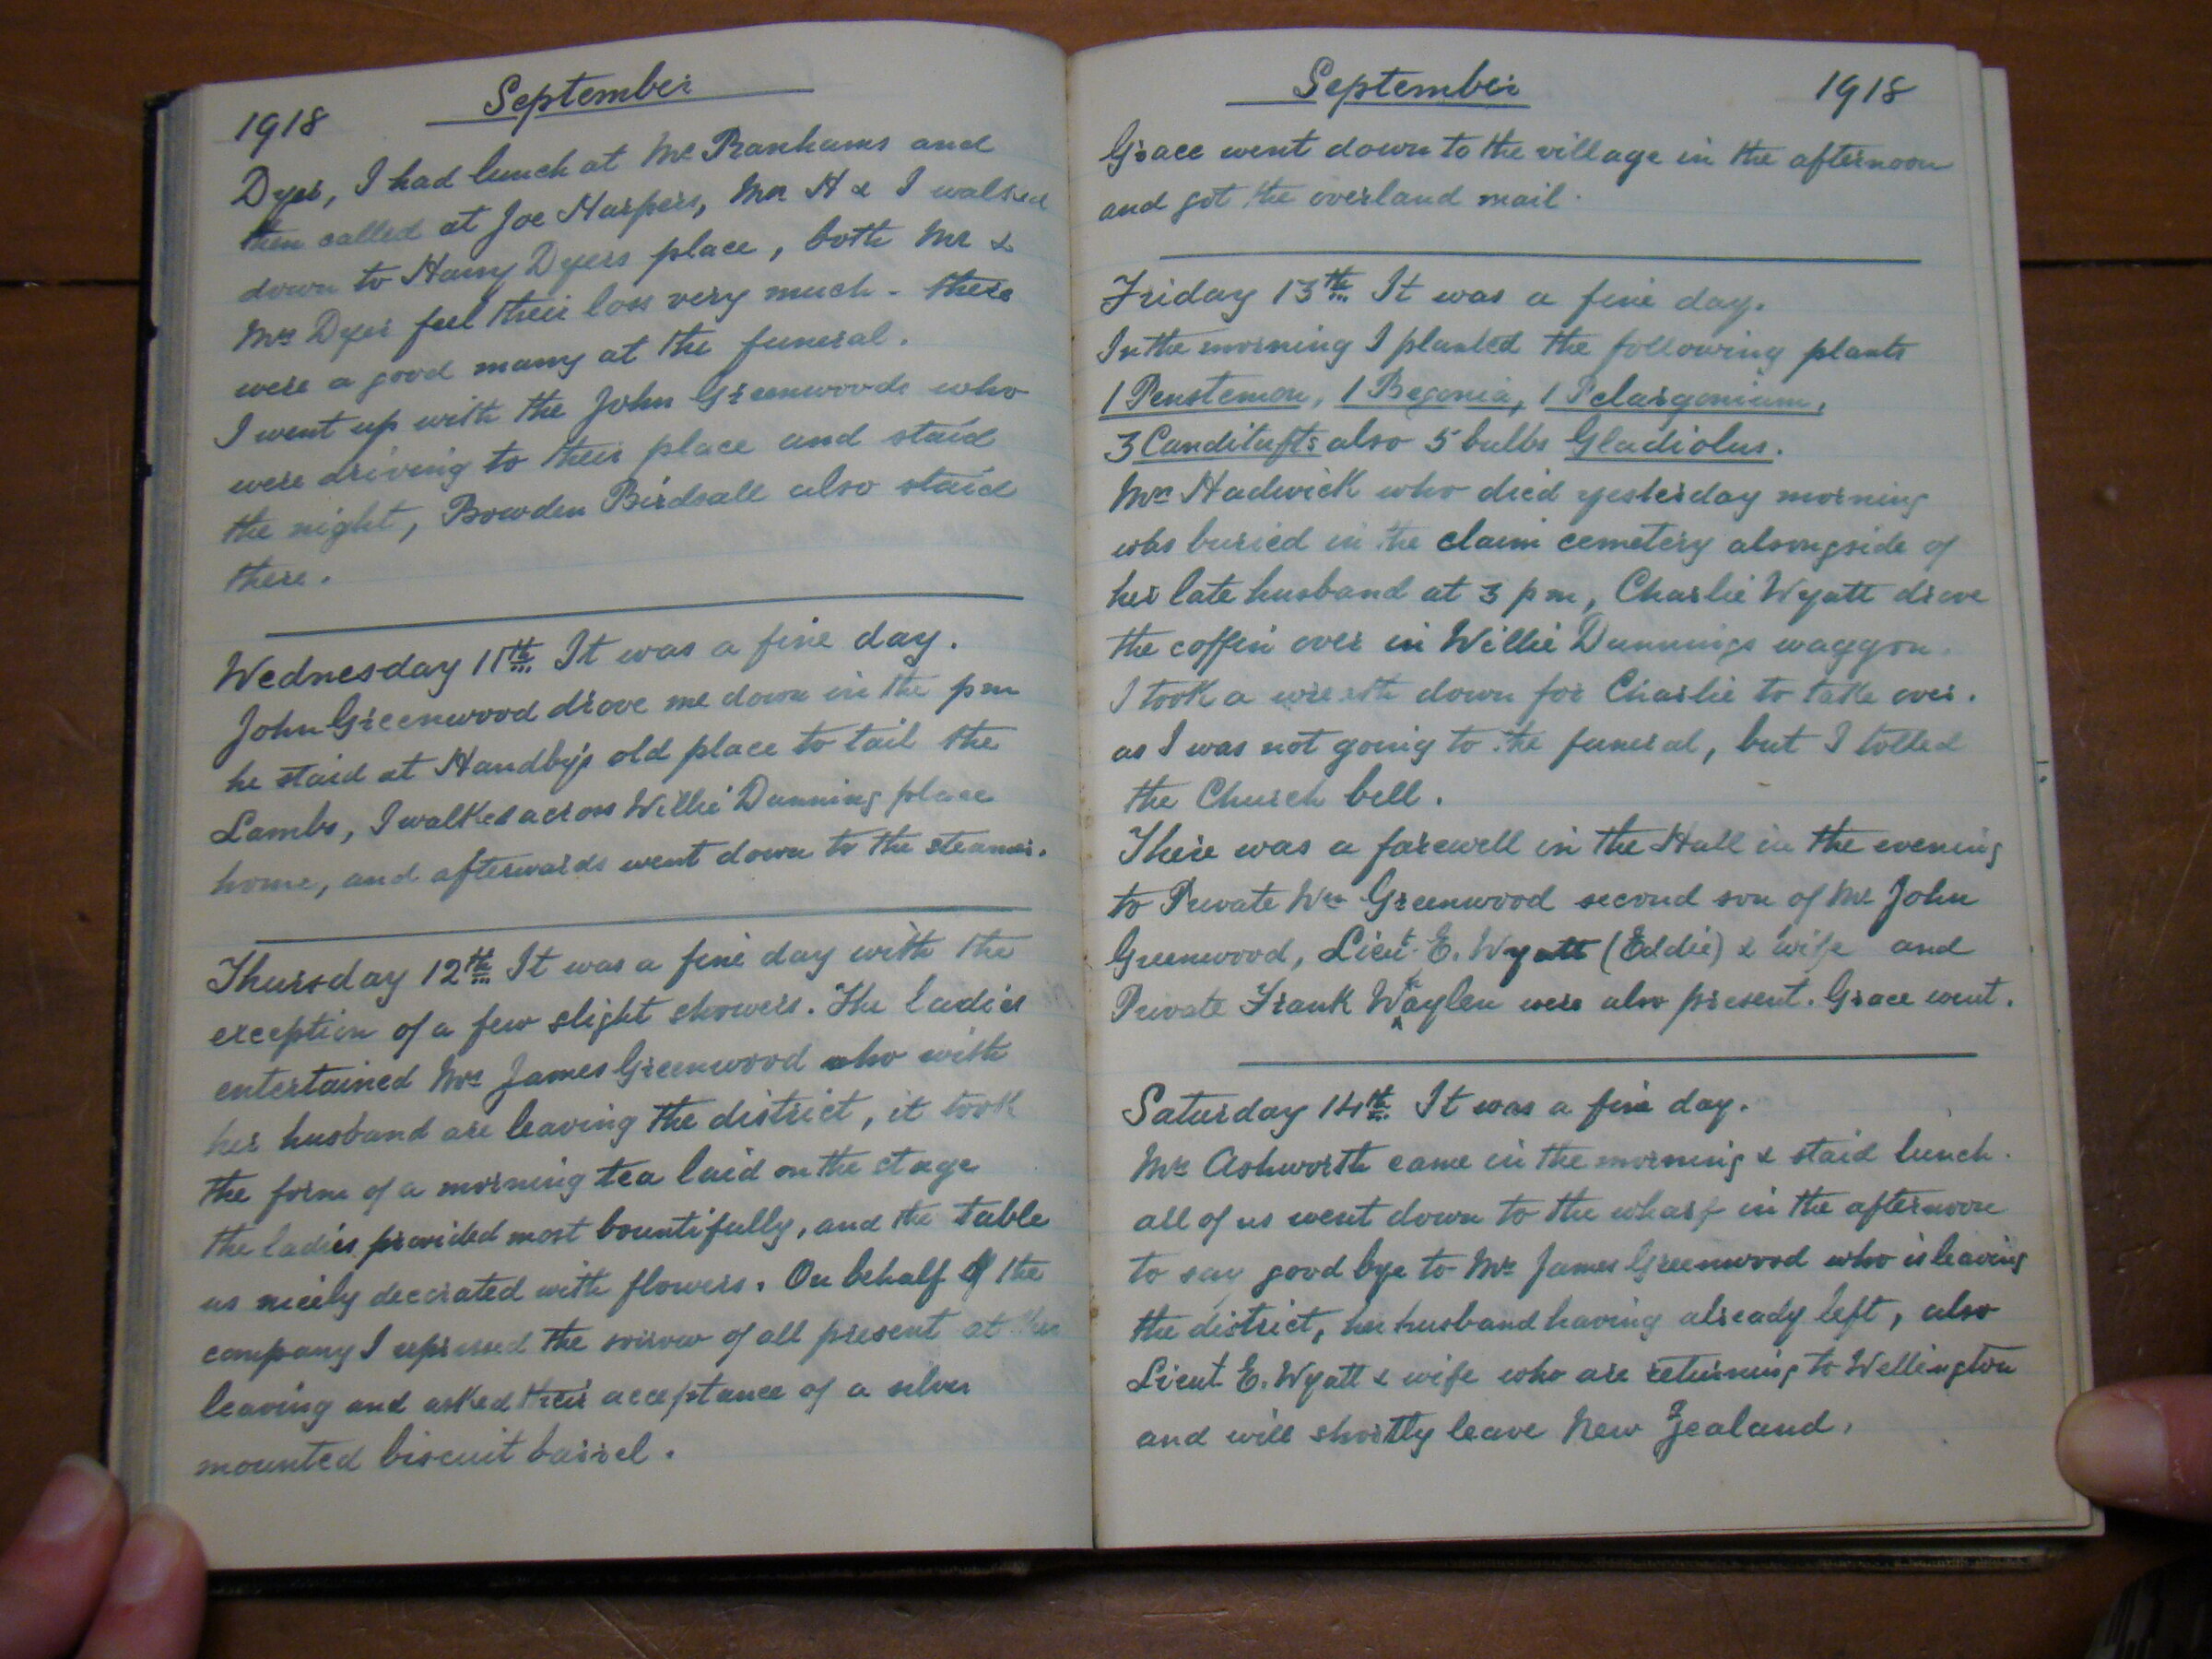 1918 September
Dyer, I had lunch at Mr Branhams and
then called at Joe Harpers, Mrs H & I walked
down to Harry Dyers place, both Mr &
Mrs Dyer feel their loss very much - there
were a good many at the funeral.
I went up with the John Greenwoods who
were driving to their place and staid
the night, Bowden Birdsall also staid
there.
Wednesday 11th It was a fine day.
John Greenwood drove me down in the pm
he staid at Handby's old place to tail the
Lambs, I walked across Willie Dunning place
home, and afterwards went down to the steamer.
Thursday 12th It was a fine day with the
exception of a few slight showers. The ladies
entertained Mrs James Greenwood who with
her husband are leaving the district, it took
the form of a morning tea laid on the stage
the ladies provided most bountifully, and the table
us nicely decorated with flowers. On behalf of the
company I expressed the sorrow of all present at
leaving and asked their acceptance of a silver
mounted biscuit barrel.
September 1918
Grace went down to the village in the afternoon
and got the overland mail.
Friday 13th It was a fine day.
In the morning I planted the following plants
1 Penstemon, 1 Begonia, 1 Pelargonium,
3 Canditufts also 5 bulbs Gladiolus.
Mrs Hadwick who died yesterday morning
was buried in the claim cemetery alongside of
her late husband at 3 pm, Charlie Wyatt drove
the coffin over in Willie Dunnings waggon.
I took a wreath down for Charlie to take over.
as I was not going to the funeral, but I tolled
the Church bell.
There was a farewell in the Hall in the evening
to Private Wm Greenwood second son of Mr John
Greenwood, Lieut. E. Wyatt (Eddie) & wife and
Private Frank Waylen were also present. Grace went.
Saturday 14th It was a fine day.
Mr Ashworth came in the morning & staid lunch.
all of us went down to the wharf in the afternoon
to say good bye to Mrs James Greenwood who is leaving
the district, her husband having already left, also
Lieut E. Wyatt & wife who are returning to Wellington
and will shortly leave New Zealand.